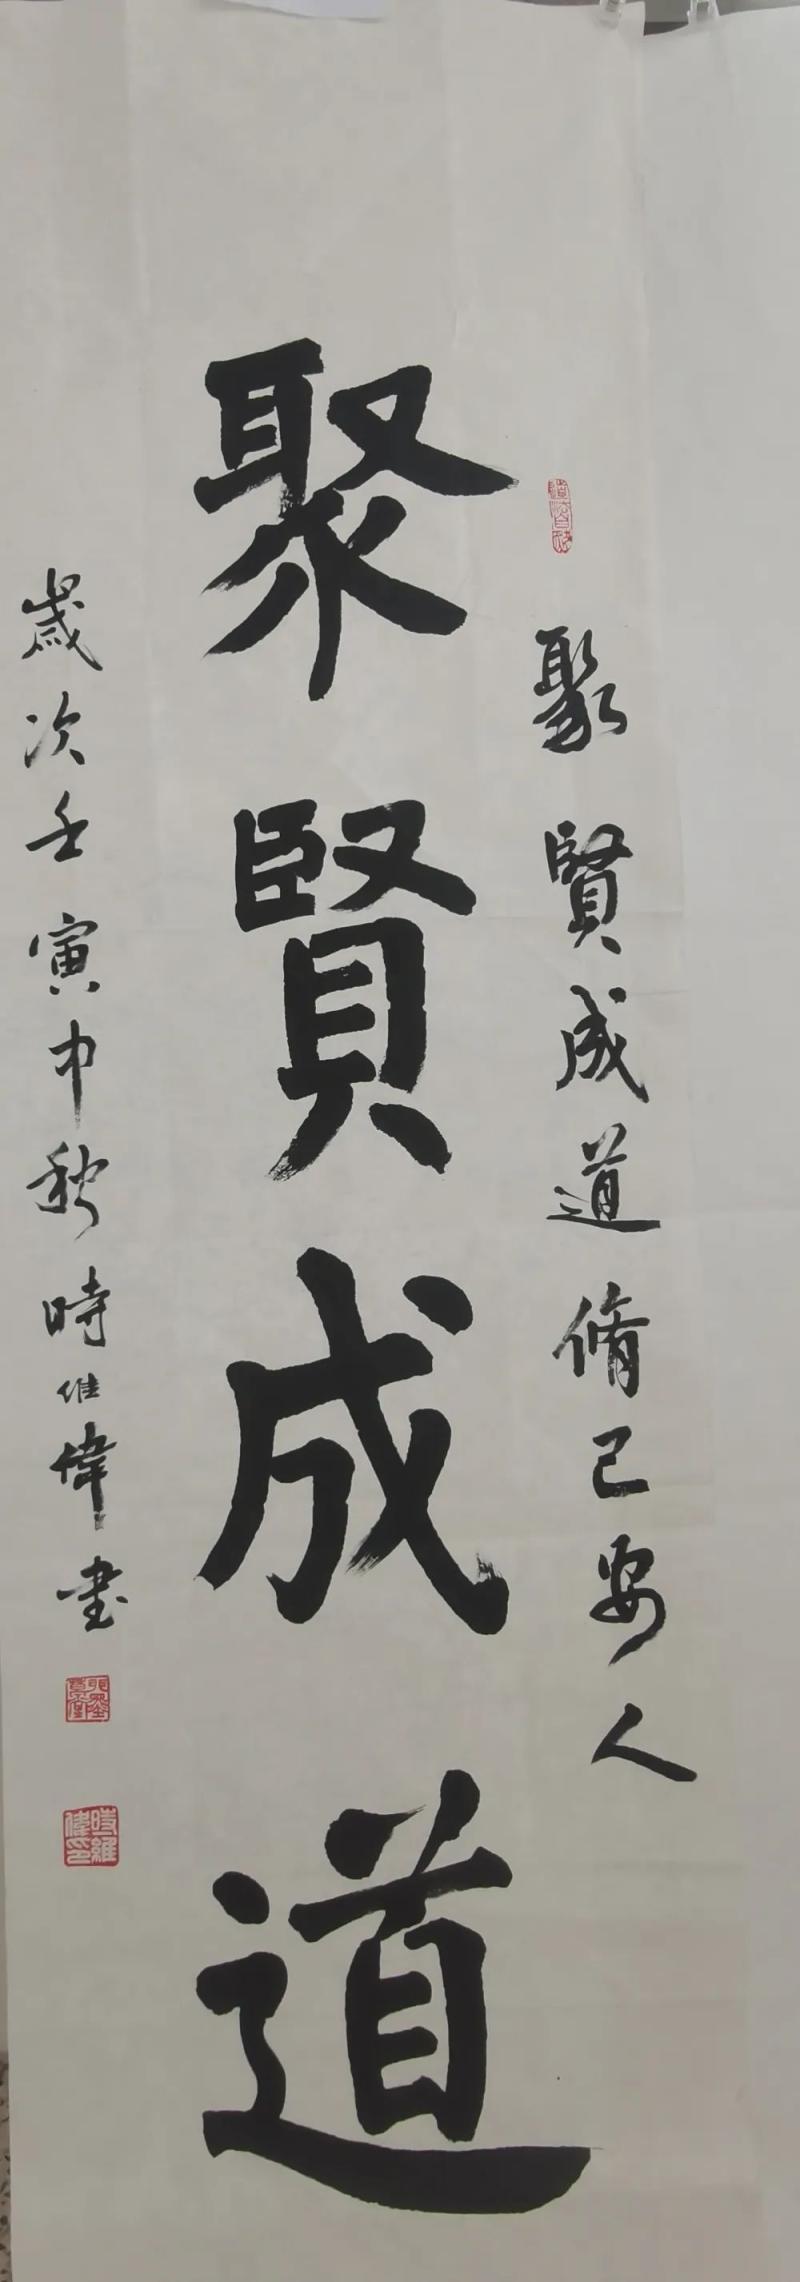 聚賢成道脩己安人
聚賢成道
歲次壬寅中秋時維偉書
時維偉印